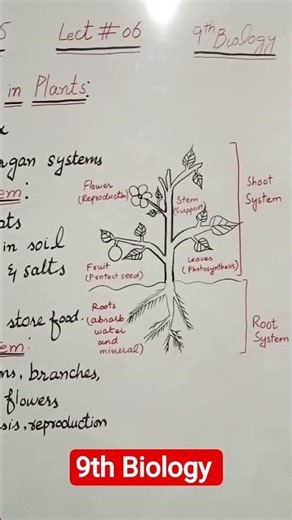 5 Lect # 06 9th Biology
in Plants:
organ systems
Flower
(Reproduction)
Stem
(Support)
Shoot
System
in soil
& salts
Fruit
(Protect seed)
Leaves
(Photosynthesis)
store food.
Roots
(absorb
water
and
mineral)
Root
System
branches,
flowers
reproduction
9th Biology